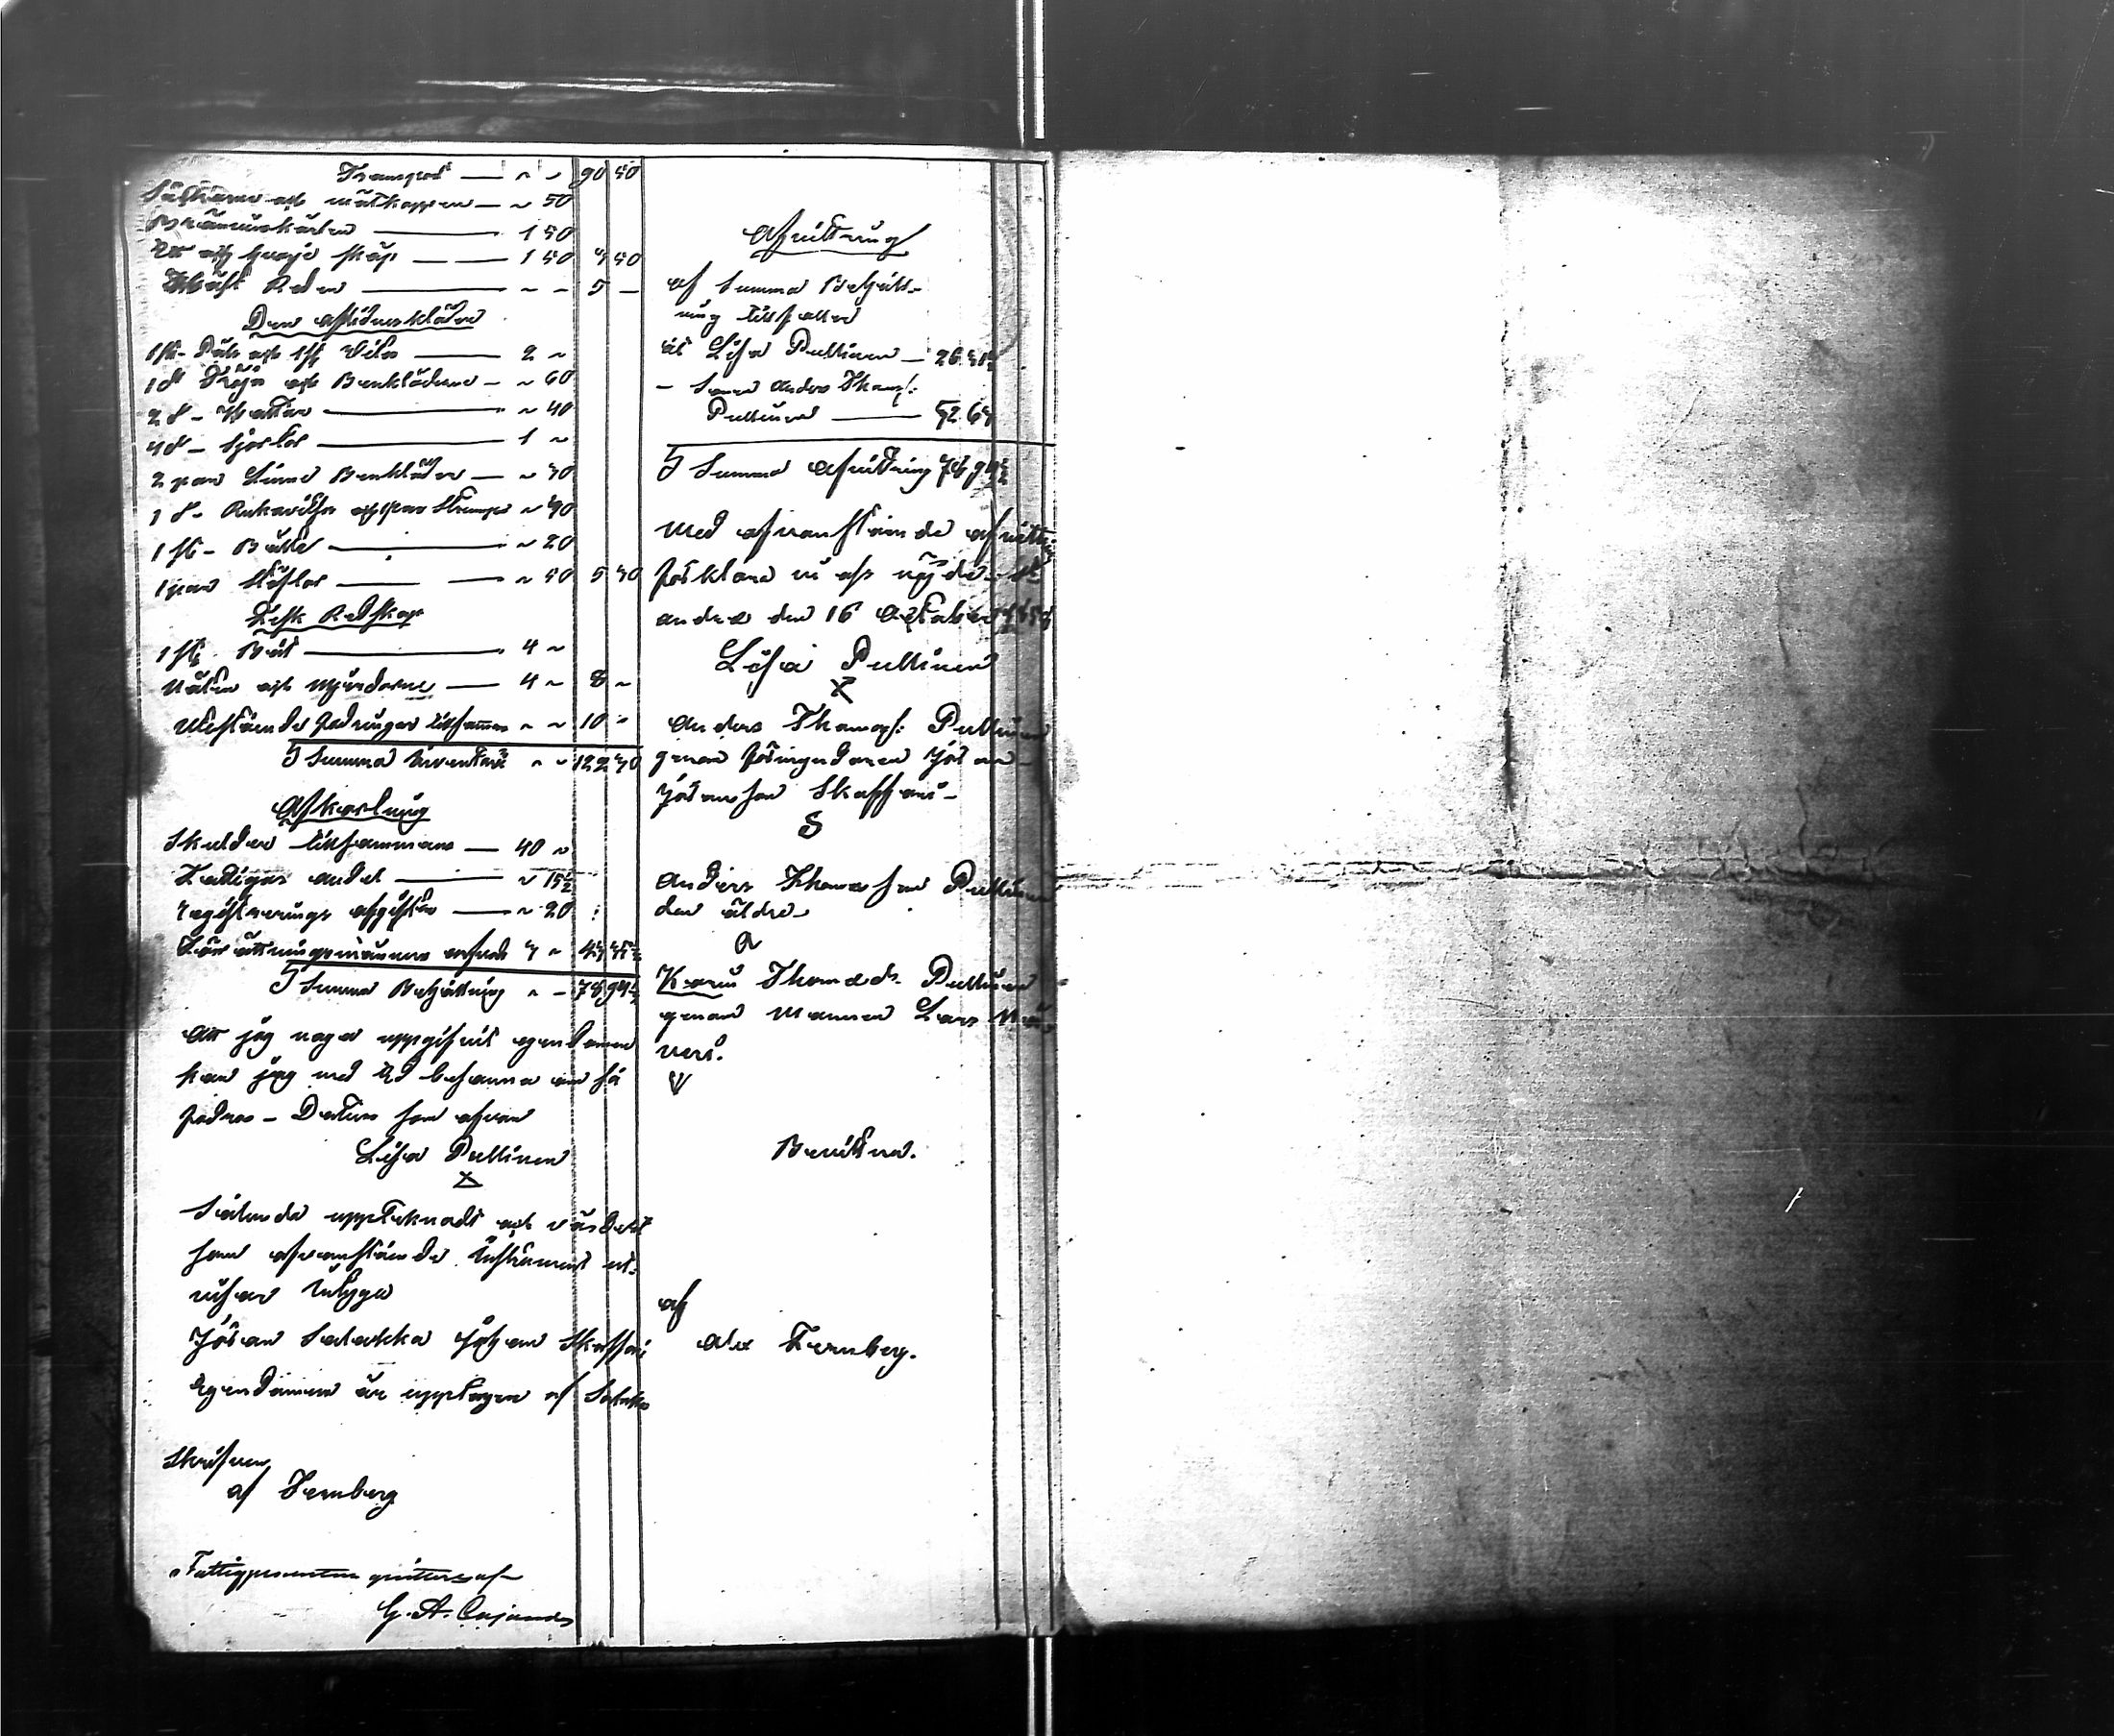 Transport — " " 90 50
och måtkappen — " 50
1 50
Ett och hvarje skåp — 1 50 3 50
Reden — " " 5 —
Den aflidnes kläder
1 st. Päls och 1 st 2 "
1 d: Tröja och Benkläderne — " 60
2 d — " 40
4 d — Sjortor — 1 "
2 par Linne Benkläder — " 30
1 d — och par Strumpor " 40
1 st — Bälte — " 20
1 par Stöflor — " 50 5 40
Fisk Redskap
1 st. Båt — 4 "
Näten och Mjerdorne — 4 " 8 "
Utestående fodringar tillsamman " " 10 "
S Summa Inventarii " " 122 40
Afkortning
Skulder tillsammans — 40 "
Fattigas andel — " 15½
Registrerings afgiften — " 20
Förrättningsmännens arfvode 3 " 43 45½
S Summa Behållning " — 78 94½
Att jag noga uppgifvit egendomen
kan jag med Ed besanna om så
fodras — Datum som ofvan
Lisa Pullinen
X
Sålunda upptecknadt och värderat
som ofvanstående Instrument ut-
visar Intyga
Jöran Salakka Johan Skaffari
Egendomen är upptagen af Salakka
Skrifven
af Fernberg
Fattigprocenten qvitteras af
G. A. Cajander
Afvittring
af Summa Behåll-
ning tillfaller
åt Lisa Pullinen — 26.31½
— Sonen Anders Thomass:
Pullinen — 52.63
S Summa Afvittring 78,94½
Med ofvanstående afvittring
förklara vi oss nöjde
andra den 16 October
Lisa Pullinen
X
Anders Thomass: Pullinen
genom förmyndaren Jöran
Jöransson Skaffari —
S
Anders Thomasson Pullinen
den äldre —
a
Karin Thomasdr. Pullinen
genom Mannen Lars
V
Bevittna.
af
Alex Fernberg.